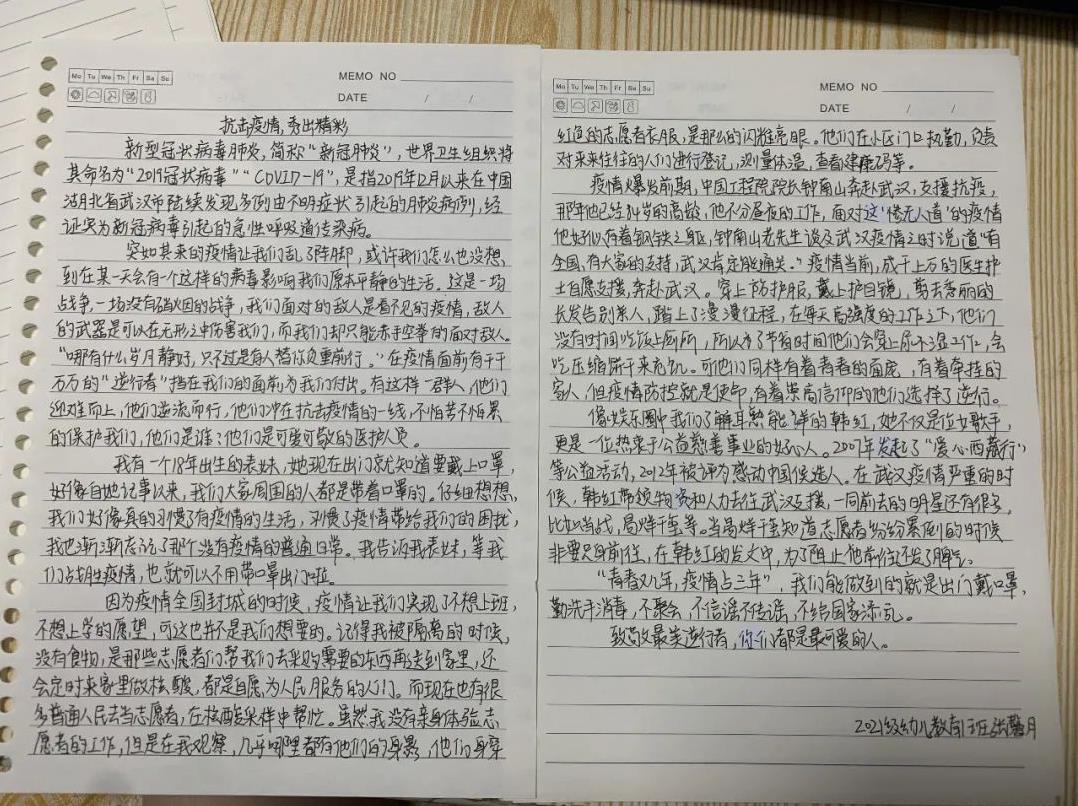 Mo Tu We Th Fr Sa Su
MEMO NO
DATE / /
抗击疫情,秀出精彩
新型冠状病毒肺炎,简称"新冠肺炎",世界卫生组织将
其命名为"2019冠状病毒""COVID-19",是指2019年12月以来在中国
湖北省武汉市陆续发现多例由不明症状引起的肺炎病例,经
证实为新冠病毒引起的急性呼吸道传染病。
突如其来的疫情让我们乱了阵脚,或许我们怎么也没想
到在某一天会有一个这样的病毒影响我们原本平静的生活。这是一场
战争,一场没有硝烟的战争,我们面对的敌人是看不见的疫情,敌人
的武器是可以在无形之中伤害我们,而我们却只能赤手空拳的面对敌人。
"哪有什么岁月静好,只不过是有人替你负重前行。"在疫情面前有千千
万万的"逆行者"挡在我们的面前,为我们付出。有这样一群人,他们
迎难而上,他们逆流而行,他们冲在抗击疫情的一线,不怕苦不怕累
的保护我们,他们是谁:他们是可爱可敬的医护人员。
我有一个18年出生的表妹,她现在出门就知道要戴上口罩,
好像自她记事以来,我们大家周围的人都是带着口罩的。仔细想想,
我们好像真的习惯了有疫情的生活,习惯了疫情带给我们的困扰,
我也渐渐忘记了那个没有疫情的普通日常。我告诉我表妹,等我
们战胜疫情,也就可以不用带口罩出门啦。
因为疫情全国封城的时候,疫情让我们实现了不想上班,
不想上学的愿望,可这也并不是我们想要的。记得我被隔离的时候,
没有食物,是那些志愿者们帮我们去采购需要的东西再送到家里,还
会定时来家里做核酸,都是自愿为人民服务的人们。而现在也有很
多普通人民去当志愿者,在核酸采样中帮忙。虽然我没有亲身体验志
愿者的工作,但是在我观察,几乎哪里都有他们的身影,他们身穿
Mo Tu We Th Fr Sa Su
MEMO NO
DATE / /
红色的志愿者衣服,是那么的闪耀亮眼。他们在小区门口执勤,负责
对来来往往的人们进行登记,测量体温,查看健康码等。
疫情爆发前期,中国工程院院长钟南山奔赴武汉,支援抗疫,
那年他已经84岁的高龄,他不分昼夜的工作,面对这"惨无人道"的疫情
他好似有着钢铁之躯,钟南山老先生谈及武汉疫情之时说道"有
全国,有大家的支持,武汉肯定能通关。"疫情当前,成千上万的医生护
士自愿支援,奔赴武汉。穿上防护服,戴上护目镜,剪去秀丽的
长发告别亲人,踏上了漫漫征程,在每天高强度的工作之下,他们
没有时间吃饭上厕所,所以为了节省时间他们会穿上尿不湿工作,会
吃压缩饼干来充饥。可他们同样有着青春的面庞,有着牵挂的
家人,但疫情防控就是使命,有着崇高信仰的他们选择了逆行。
像娱乐圈中我们了解耳熟能详的韩红,她不仅是位女歌手,
更是一位热衷于公益慈善事业的好心人。2007年发起了"爱心西藏行"
等公益活动,2012年被评为感动中国候选人。在武汉疫情严重的时
候,韩红带领物资和人力去往武汉支援,一同前去的明星还有很多,
比如肖战,易烊千玺等。当易烊千玺知道志愿者纷纷累倒的时候
非要只身前往,在韩红的发文中,为了阻止他前往还发了脾气。
"青春又几年,疫情占三年",我们能做到的就是出门戴口罩,
勤洗手消毒,不聚会,不信谣不传谣,不给国家添乱。
致敬最美逆行者,你们都是最可爱的人。
2021级幼儿教育1班张馨月